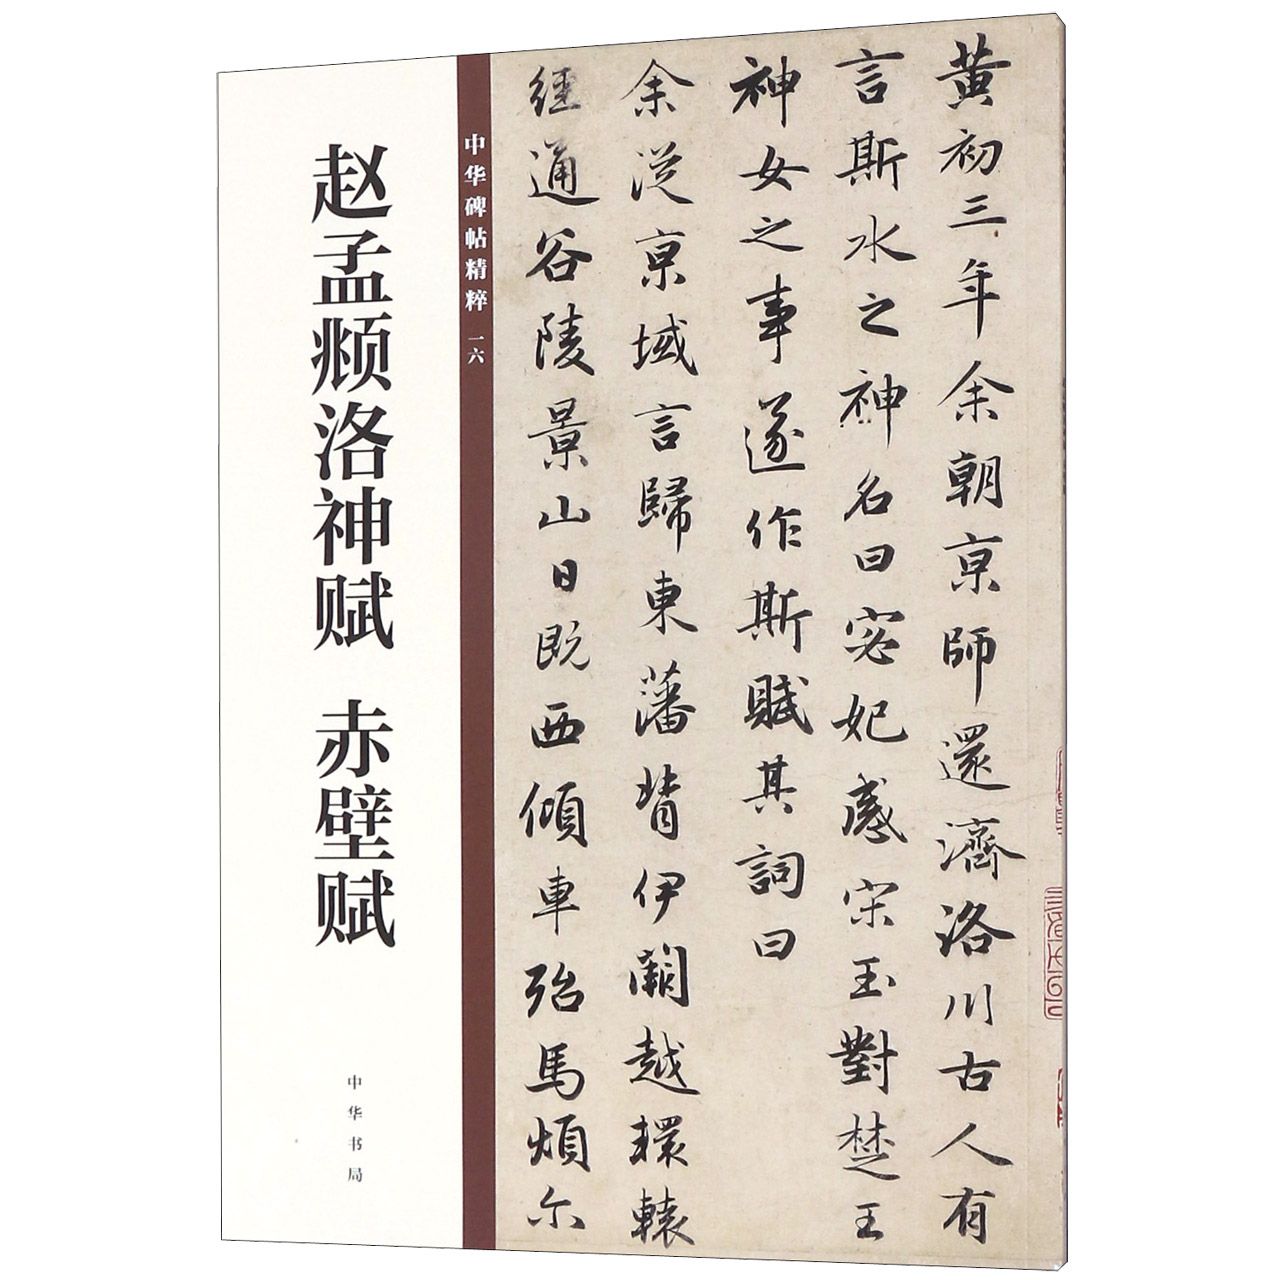 赵孟頫洛神赋 赤壁赋
中华书局
中华碑帖精粹 一六
黄初三年余朝京師還濟洛川古人有
言斯水之神名曰宓妃感宋玉對楚王
神女之事遂作斯賦其詞曰
余從京域言歸東藩背伊闕越轘轅
經通谷陵景山日既西傾車殆馬煩尔